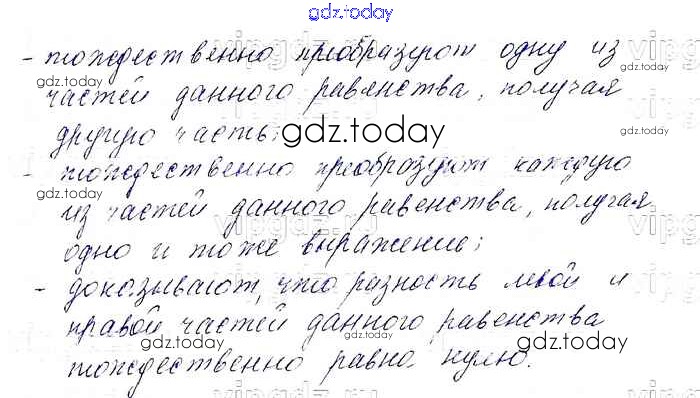 gdz.today
- тождественно преобразуют одну из
частей данного равенства, получая
другую часть;
gdz.today
- тождественно преобразуют каждую
из частей данного равенства, получая
одно и тоже выражение;
- доказывают, что разность левой и
правой частей данного равенства
тождественно равна нулю.
gdz.today
gdz.today
gdz.today
gdz.today
gdz.today
gdz.today
gdz.today
gdz.today